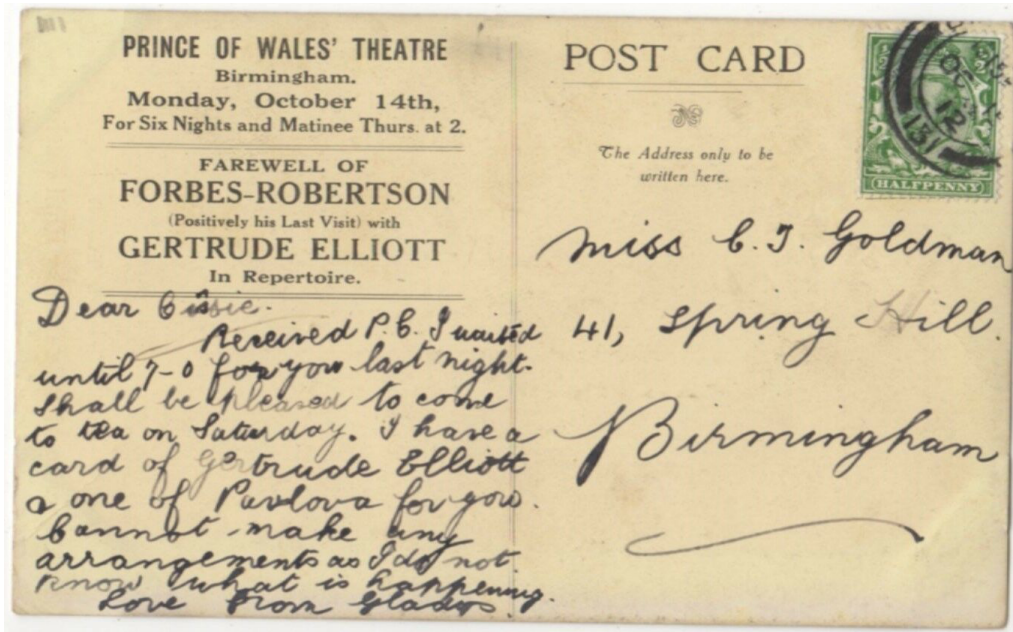 PRINCE OF WALES' THEATRE
Birmingham.
Monday, October 14th,
For Six Nights and Matinee Thurs. at 2.
FAREWELL OF
FORBES-ROBERTSON
(Positively his Last Visit) with
GERTRUDE ELLIOTT
In Repertoire.
Dear Cissie.
Received P.C. I waited
until 7-0 for you last night.
Shall be pleased to come
to tea on Saturday. I have a
card of Gertrude Elliott
& one of Pavlova for you.
Cannot make any
arrangements as I do not
know what is happening.
Love from Gladys
POST CARD
The Address only to be
written here.
HALFPENNY
OC
12
131
Miss C. J. Goldman
41, Spring Hill.
Birmingham